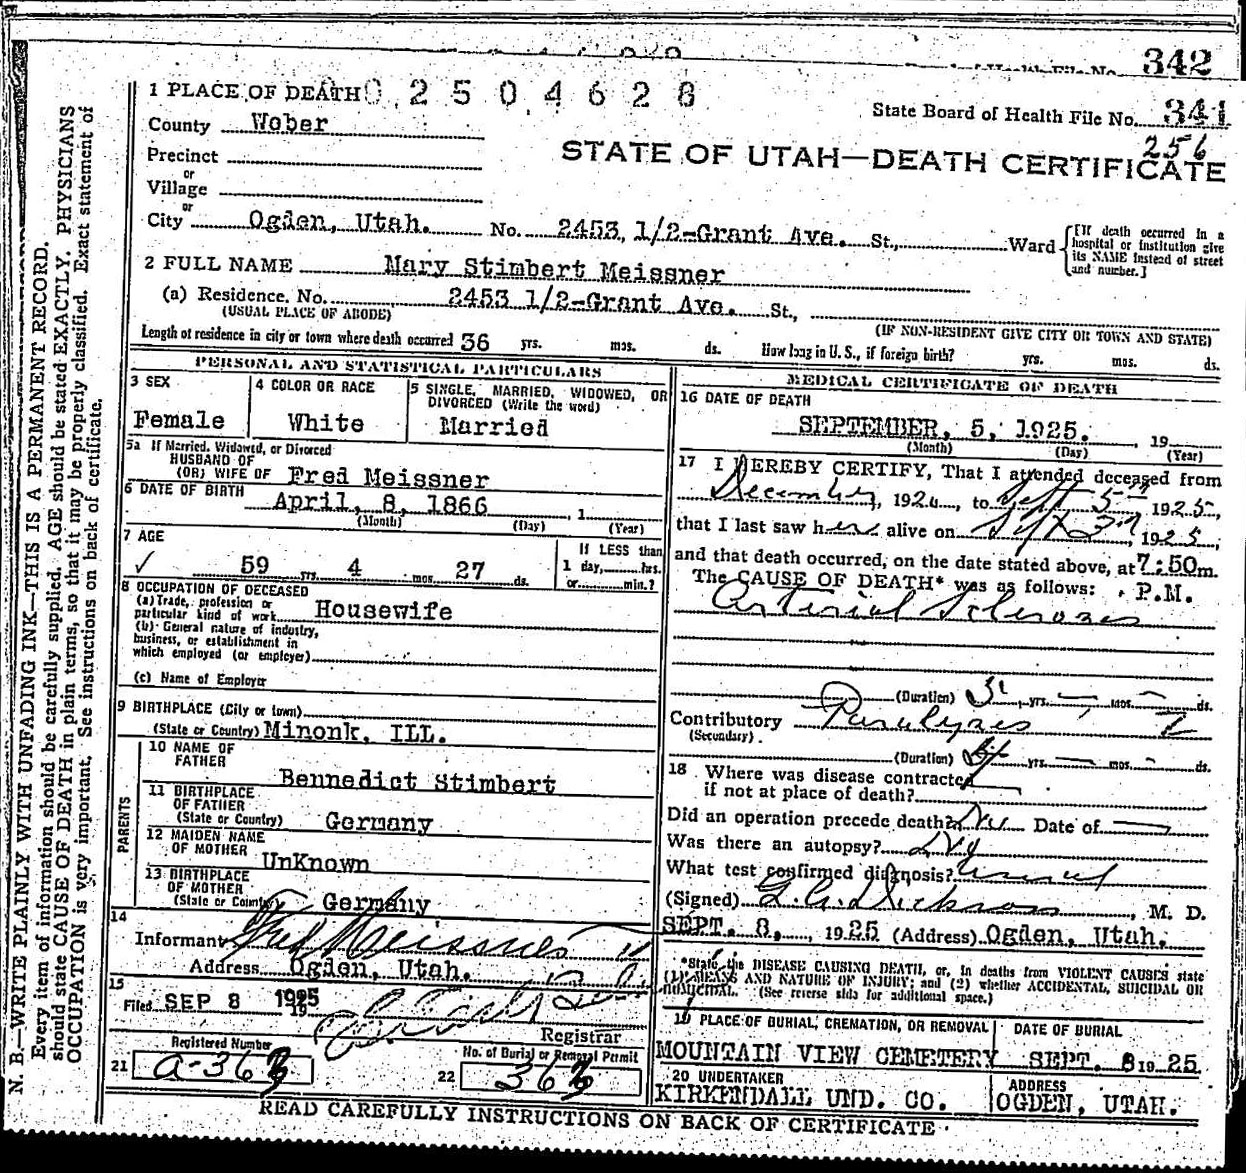 342
1 PLACE OF DEATH 0 2 5 0 4 6 2 8
State Board of Health File No. 341
County Wober
256
STATE OF UTAH—DEATH CERTIFICATE
Precinct
or
Village
or
City Ogden, Utah. No. 2453, 1/2-Grant Ave. St., Ward
[If death occurred in a hospital or institution give its NAME instead of street and number.]
2 FULL NAME Mary Stimbert Meissner
(a) Residence. No. 2453 1/2-Grant Ave. St.,
(USUAL PLACE OF ABODE) (IF NON-RESIDENT GIVE CITY OR TOWN AND STATE)
Length of residence in city or town where death occurred 36 yrs. mos. ds. How long in U. S., if foreign birth? yrs. mos. ds.
PERSONAL AND STATISTICAL PARTICULARS
3 SEX
Female
4 COLOR OR RACE
White
5 SINGLE, MARRIED, WIDOWED, OR
DIVORCED (Write the word)
Married
5a If Married, Widowed, or Divorced
HUSBAND OF
(OR) WIFE OF Fred Meissner
6 DATE OF BIRTH April, 8, 1866 , 1
(Month) (Day) (Year)
7 AGE
✓ 59 yrs. 4 mos. 27 ds.
If LESS than
1 day, hrs.
or min.?
8 OCCUPATION OF DECEASED
(a) Trade, profession or
particular kind of work Housewife
(b) General nature of industry,
business, or establishment in
which employed (or employer)
(c) Name of Employer
9 BIRTHPLACE (City or town)
(State or Country) Minonk, ILL.
PARENTS
10 NAME OF
FATHER
Bennedict Stimbert
11 BIRTHPLACE
OF FATHER
(State or Country) Germany
12 MAIDEN NAME
OF MOTHER UnKnown
13 BIRTHPLACE
OF MOTHER
(State or Country) Germany
14
Informant Fred Meissner
Address Ogden, Utah.
15
Filed SEP 8 1925
19
Registrar
Registered Number
21 a-363
No. of Burial or Removal Permit
22 363
MEDICAL CERTIFICATE OF DEATH
16 DATE OF DEATH
SEPTEMBER, 5, 1925. , 19
(Month) (Day) (Year)
17 I HEREBY CERTIFY, That I attended deceased from
December, 1920, to Sept 5th 1925,
that I last saw her alive on Sept 3rd, 1925,
and that death occurred, on the date stated above, at 7:50m.
The CAUSE OF DEATH* was as follows: P.M.
Arterial Sclerozes
(Duration) yrs. — mos. — ds.
Contributory Paralyzes
(Secondary)
(Duration) yrs. — mos. — ds.
18 Where was disease contracted
if not at place of death?
Did an operation precede death? No Date of —
Was there an autopsy?
What test confirmed diagnosis? usual
(Signed) Dickson, M. D.
SEPT. 8, , 1925 (Address) Ogden, Utah.
*State the DISEASE CAUSING DEATH, or, in deaths from VIOLENT CAUSES state
(1) MEANS AND NATURE OF INJURY; and (2) whether ACCIDENTAL, SUICIDAL OR
HOMICIDAL. (See reverse side for additional space.)
19 PLACE OF BURIAL, CREMATION, OR REMOVAL
MOUNTAIN VIEW CEMETERY
DATE OF BURIAL
SEPT. 8 19 25
20 UNDERTAKER
KIRKENDALL UND. CO.
ADDRESS
OGDEN, UTAH.
READ CAREFULLY INSTRUCTIONS ON BACK OF CERTIFICATE
N. B.—WRITE PLAINLY WITH UNFADING INK—THIS IS A PERMANENT RECORD.
Every item of information should be carefully supplied. AGE should be stated EXACTLY. PHYSICIANS
should state CAUSE OF DEATH in plain terms, so that it may be properly classified. Exact statement of
OCCUPATION is very important. See instructions on back of certificate.